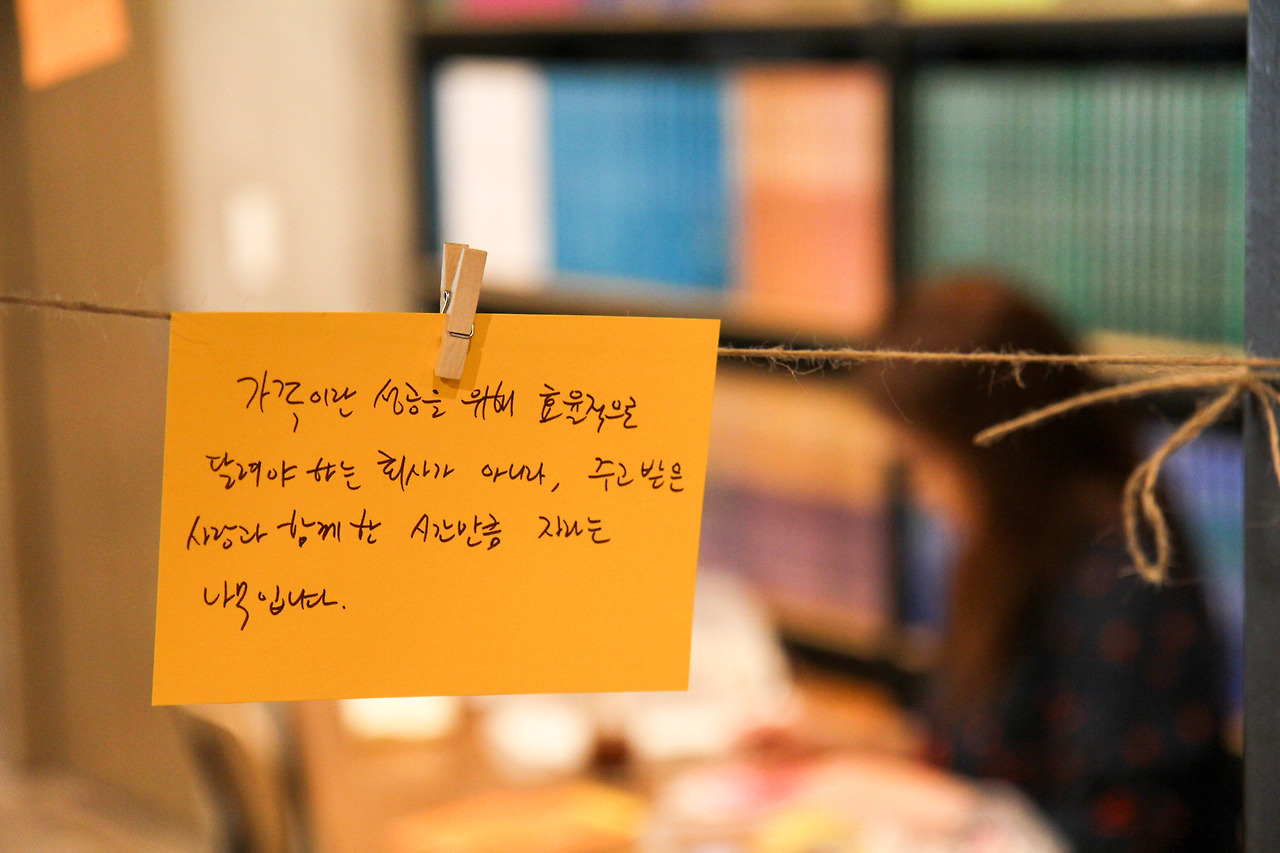 가족이란 성공을 위해 효율적으로
달려야 하는 회사가 아니라, 주고 받은
사랑과 함께 한 시간만큼 자라는
나무입니다.